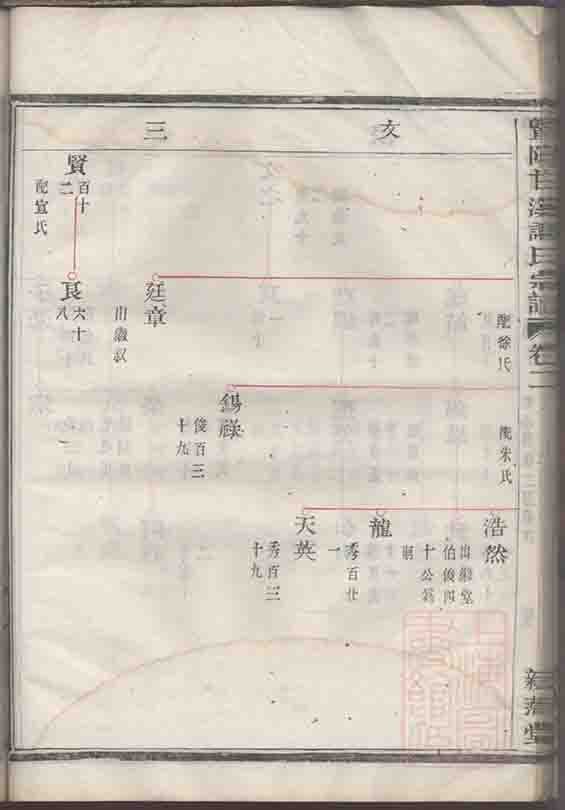 暨陽甘溪
氏宗譜
卷二
文
三
配徐氏
配朱氏
浩然
出繼堂
伯俊四
十公為
嗣
龍
秀百廿
一
天英
秀百三
十九
錫祿
俊百三
十九
廷章
出繼叔
賢
百十
二
配宣氏
良
六十
八